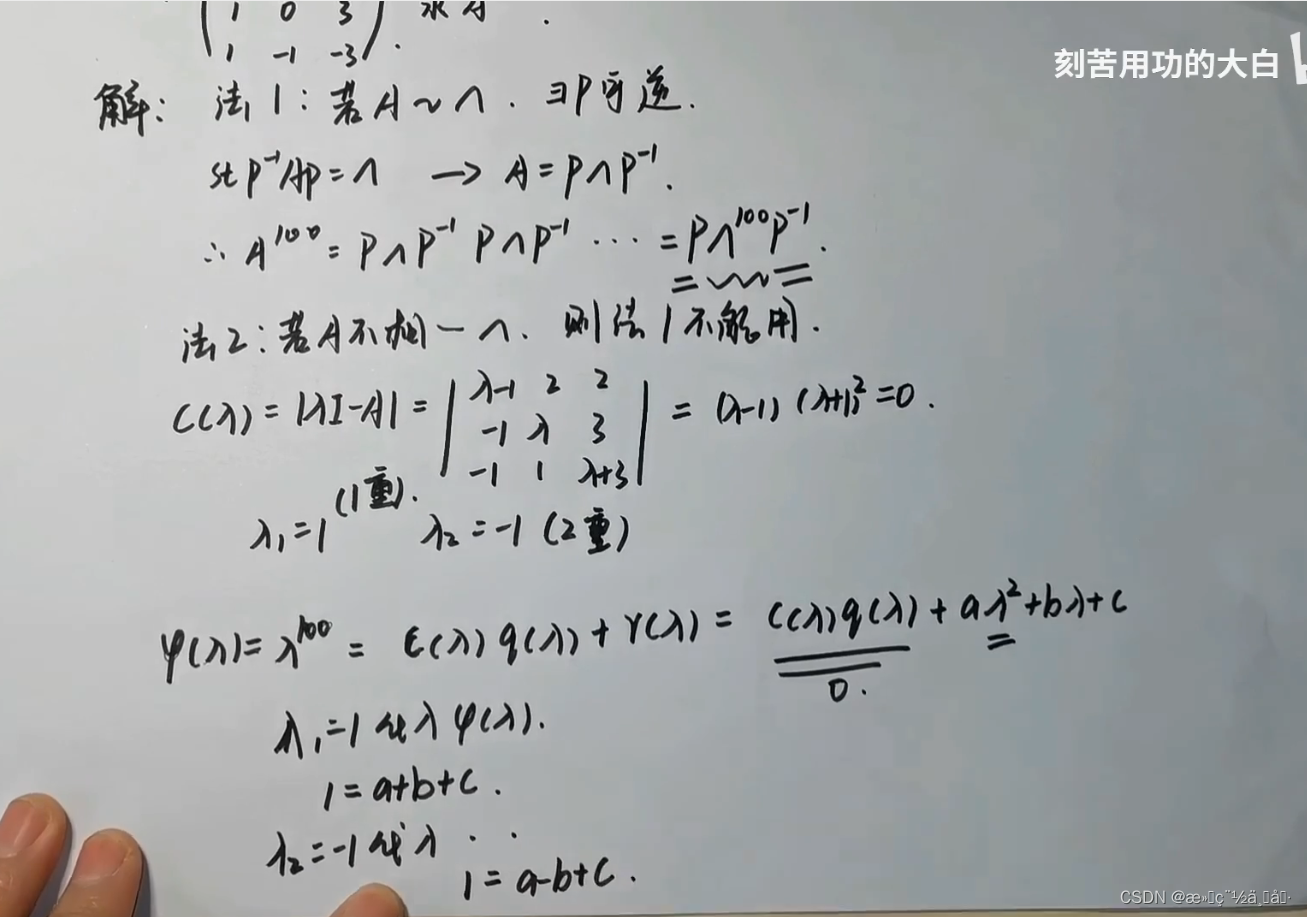 1 0 3 求A .
1 -1 -3 .
刻苦用功的大白
解: 法1: 若A~Λ . ∃P可逆.
st P⁻¹AP=Λ → A=PΛP⁻¹.
∴ A¹⁰⁰ = PΛP⁻¹ PΛP⁻¹ ··· = PΛ¹⁰⁰P⁻¹.
法2: 若A不相一Λ. 则法1不能用.
C(λ) = |λI-A| = | λ-1 2 2 | = (λ-1) (λ+1)² = 0 .
-1 λ 3
-1 1 λ+3
(1重).
λ₁=1 λ₂=-1 (2重)
φ(λ)=λ¹⁰⁰ = C(λ) q(λ) + r(λ) = C(λ)q(λ) + aλ²+bλ+c
0.
λ₁=1 代λ φ(λ).
1 = a+b+c .
λ₂=-1 代λ . .
1 = a-b+c .
CSDN @